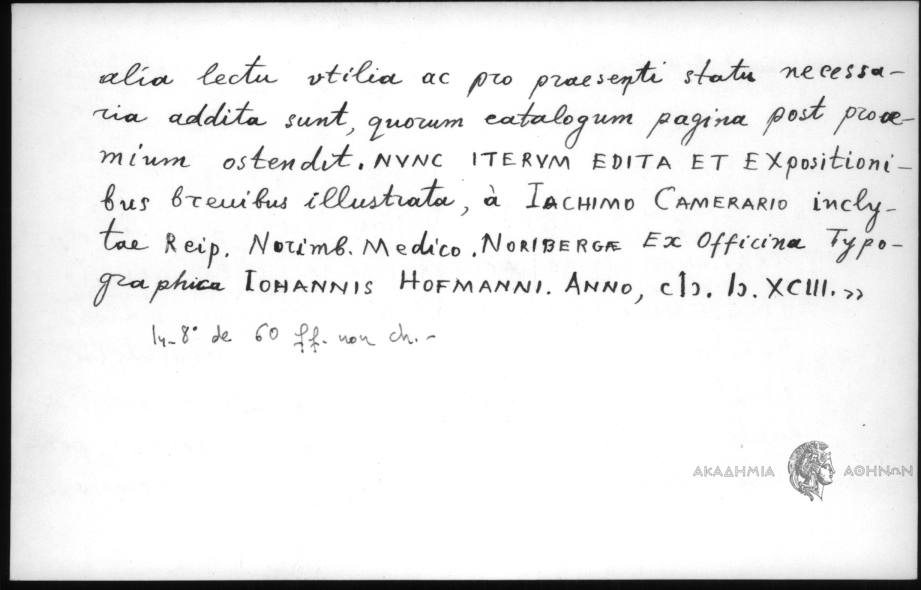 alia lectu vtilia ac pro praesenti statu necessa-
ria addita sunt, quorum catalogum pagina post prooe-
mium ostendit. NVNC ITERVM EDITA ET EXpositioni-
bus breuibus illustrata, à IACHIMO CAMERARIO incly-
tae Reip. Norimb. Medico. NORIBERGÆ Ex Officina Typo-
graphica IOHANNIS HOFMANNI. ANNO, cIↃ. IↃ. XCIII.»
In-8° de 60 ff. non ch. -
ΑΚΑΔΗΜΙΑ ΑΘΗΝΩΝ